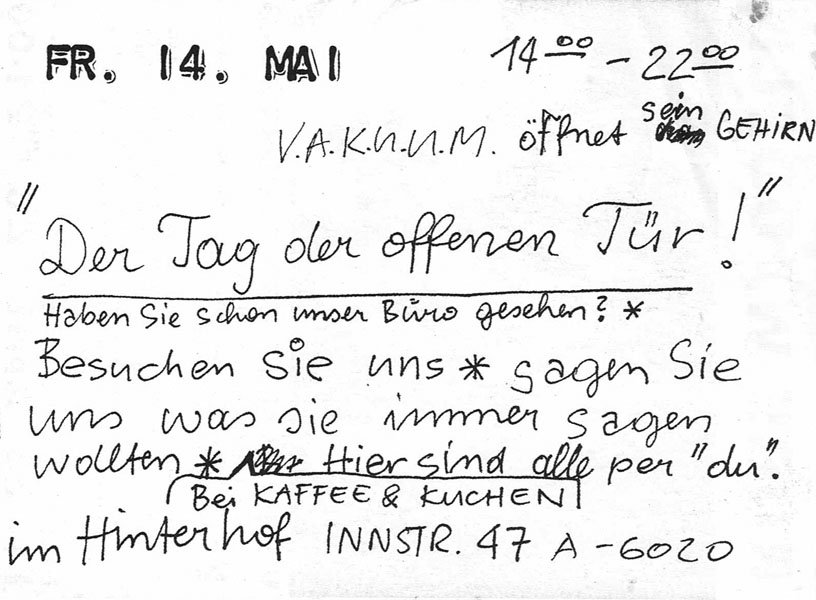 FR. 14. MAI 14⁰⁰ – 22⁰⁰
V.A.K.U.U.M. öffnet sein GEHIRN
"Der Tag der offenen Tür!"
Haben Sie schon unser Büro gesehen? *
Besuchen Sie uns * sagen Sie
uns was sie immer sagen
wollten * Hier sind alle per "du".
Bei KAFFEE & KUCHEN
im Hinterhof INNSTR. 47 A – 6020